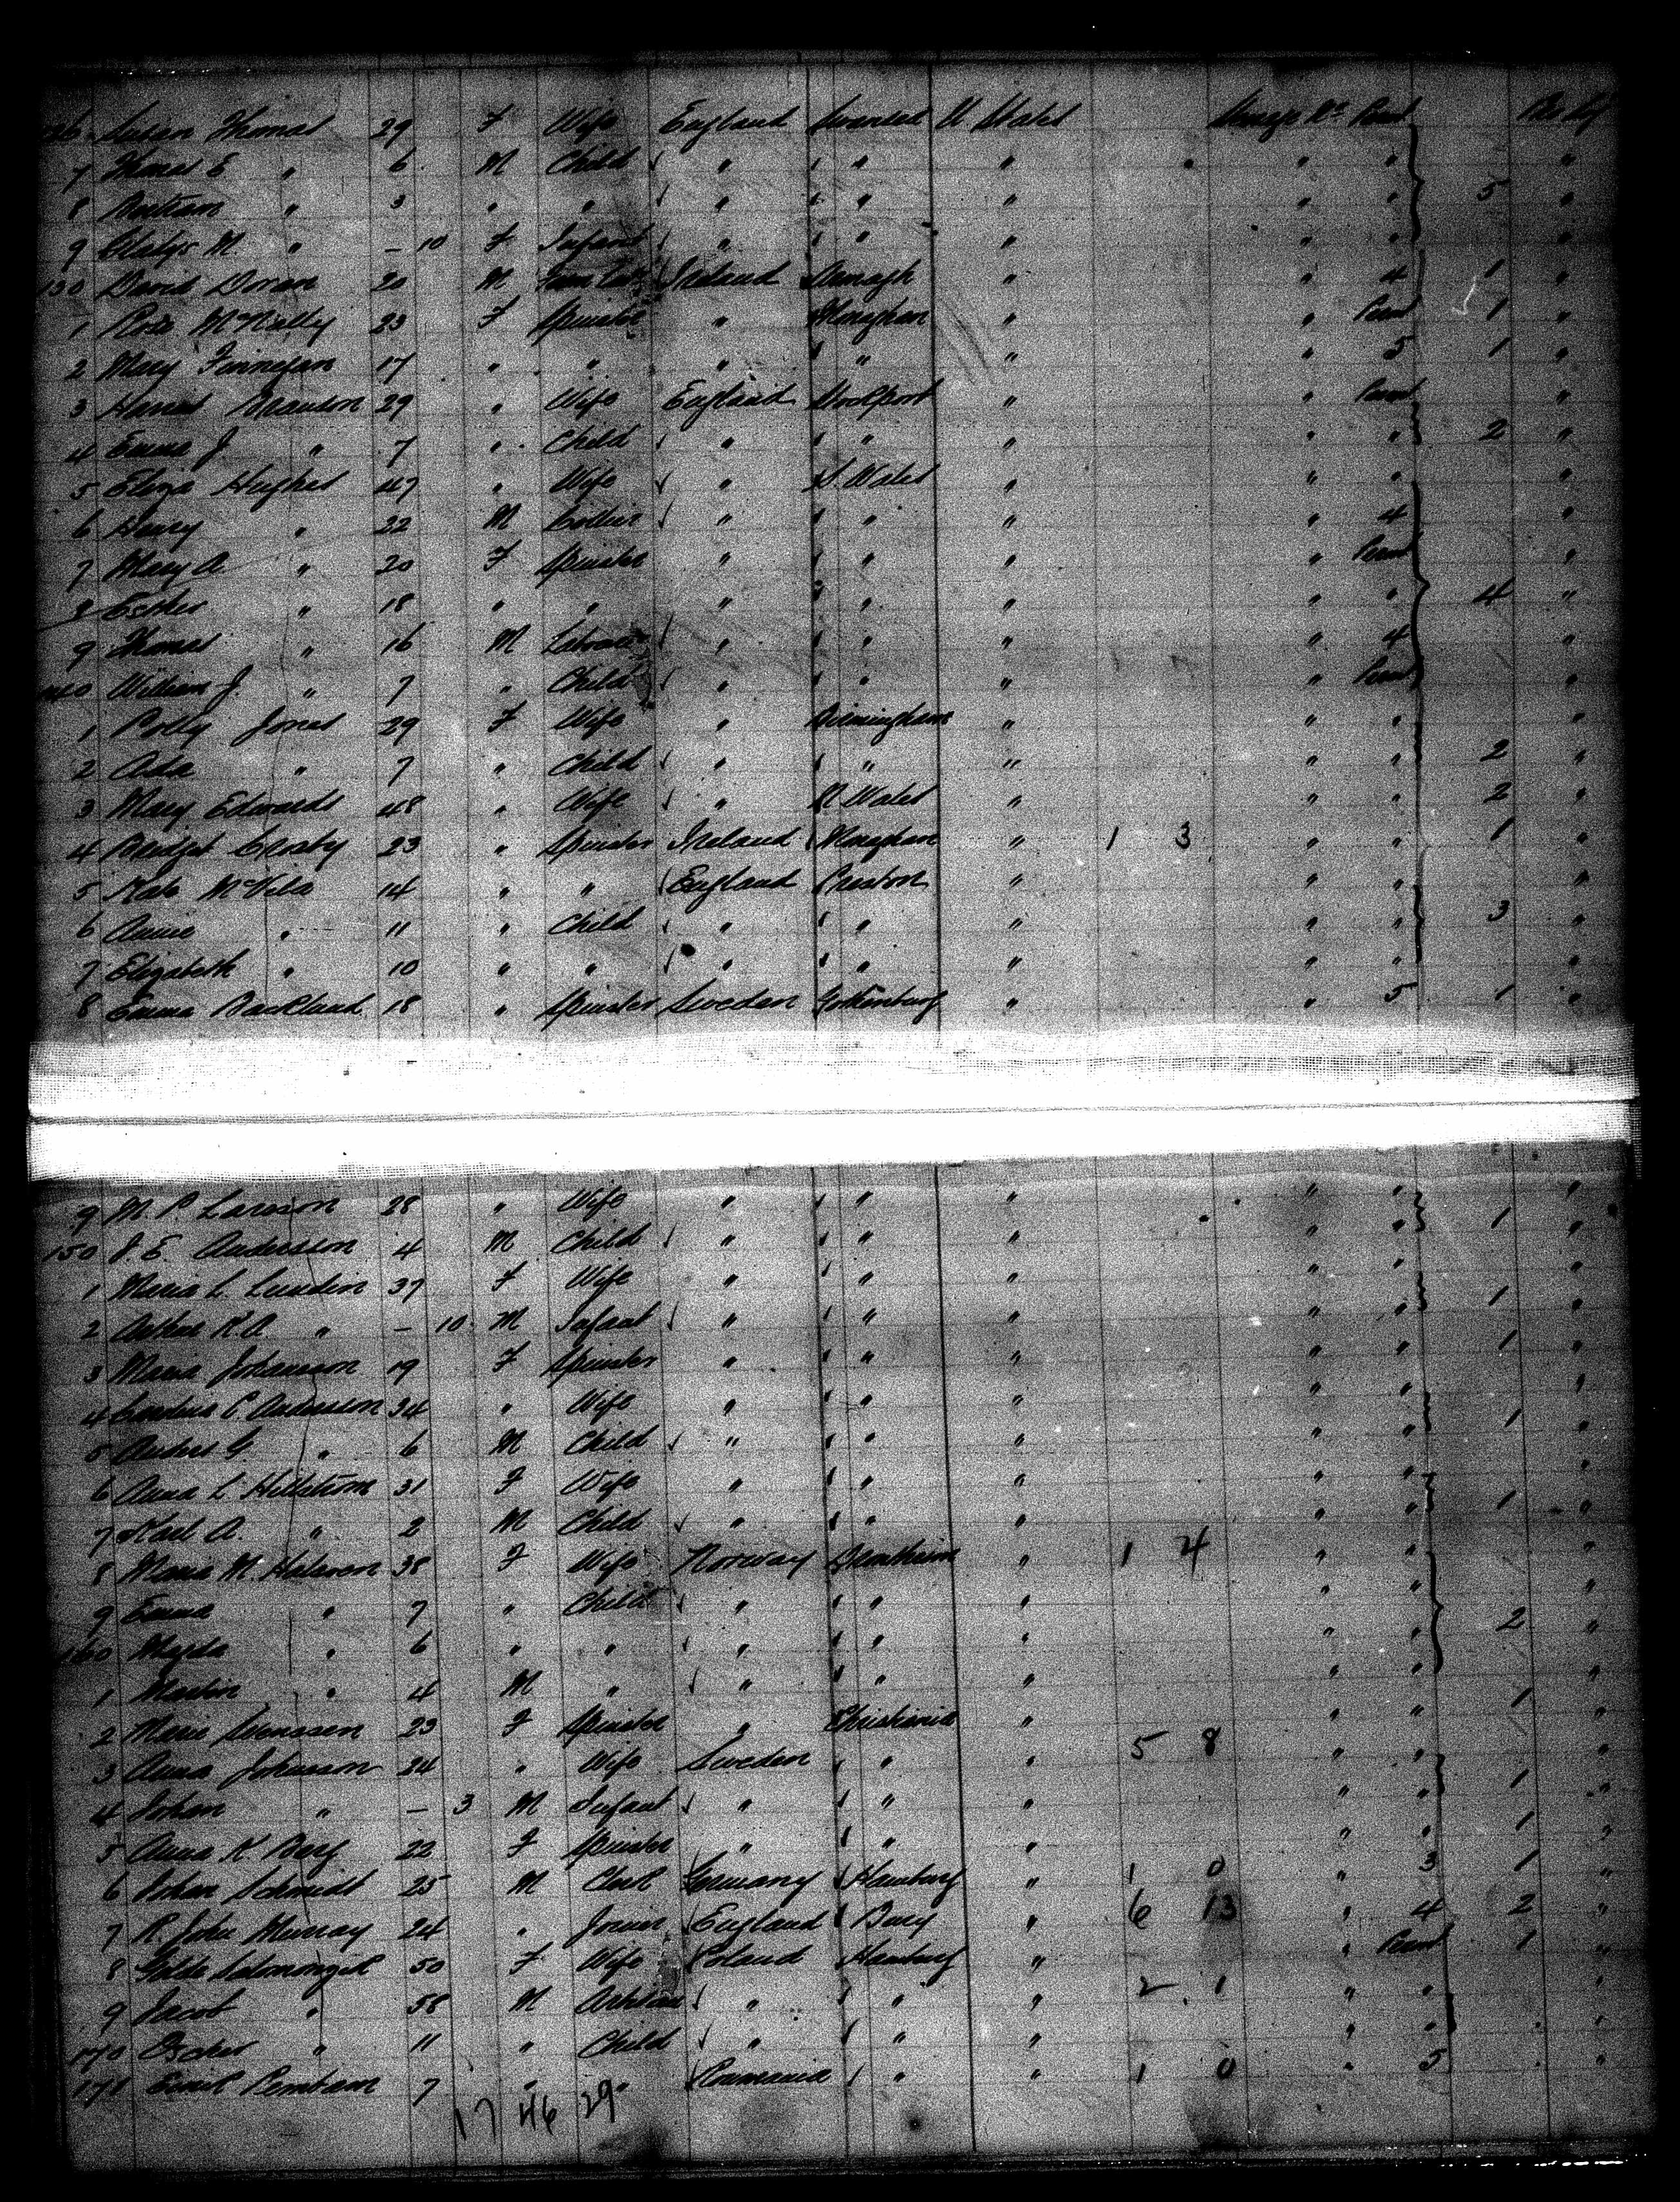 126 Susan Thomas 29 F Wife England Swansea U States Steerage Perm
7 Thomas E " 6 M Child " " " " "
8 " 3 " " " " " " " 5 "
9 Gladys M. " – 10 F Infant " " " " " "
130 David Doran 20 M Ireland Armagh " " 4 1 "
1 Rose McNally 23 F Spinster " Monaghan " " Perm 1 "
2 Mary Finnegan 17 " " " " " " 5 1 "
3 29 " Wife England Stockport " " Perm "
4 Emma J. " 7 " Child " " " " " 2 "
5 Eliza Hughes 47 " Wife " S. Wales " " " "
6 Henry " 22 M Collier " " " " 4 "
7 Mary A " 20 F Spinster " " " " Perm "
8 Esther " 18 " " " " " " " 4 "
9 Thomas " 16 M Labourer " " " " 4 "
140 William J. " 7 " Child " " " " Perm "
1 Polly Jones 29 F Wife " Birmingham " " " "
2 Ada " 7 " Child " " " " " 2 "
3 Mary Edwards 48 " Wife " N Wales " " " 2 "
4 Bridget Crosby 23 " Spinster Ireland Monaghan " 1 3 " " 1 "
5 Kate 14 " " England Preston " " " "
6 Annie " 11 " Child " " " " " 3 "
7 Elizabeth " 10 " " " " " " " "
8 Emma Backlund 18 " Spinster Sweden Gothenburg " " 5 1 "
9 M. P. Larsson 28 " Wife " " " " " "
150 J. E. Andersson 4 M Child " " " " " 1 "
1 Maria L. Lundin 37 F Wife " " " " " "
2 K. A. " – 10 M Infant " " " " " 1 "
3 Maria Johansson 19 F Spinster " " " " " 1 "
4 C. Anderson 34 " Wife " " " " " "
5 Anders G. " 6 M Child " " " " " 1 "
6 Anna L. Hillstrom 31 F Wife " " " " " "
7 Karl A. " 2 M Child " " " " " 1 "
8 Maria M. Halvorsen 38 F Wife Norway Drontheim " 1 4 " " "
9 Emma " 7 " Child " " " " " "
160 Magda " 6 " " " " " " " 2 "
1 Martin " 4 M " " " " " " "
2 Marie Svenssen 23 F Spinster " Christiania " " " 1 "
3 Anna Johnson 24 " Wife Sweden " " 5 8 " " "
4 Johan " – 3 M Infant " " " " " 1 "
5 Anna K. Berg 22 F Spinster " " " " " 1 "
6 Johan Schmidt 25 M Clerk Germany Hamburg " 1 0 " 3 1 "
7 R. John Murray 24 " Joiner England Bury " 6 13 " 4 2 "
8 50 F Wife Poland Hamburg " " Perm 1 "
9 Jacob " 58 M " " " 2 1 " " "
170 " 11 " Child " " " " " "
171 7 " " Roumania " " 1 0 " 5 "
17 46 29